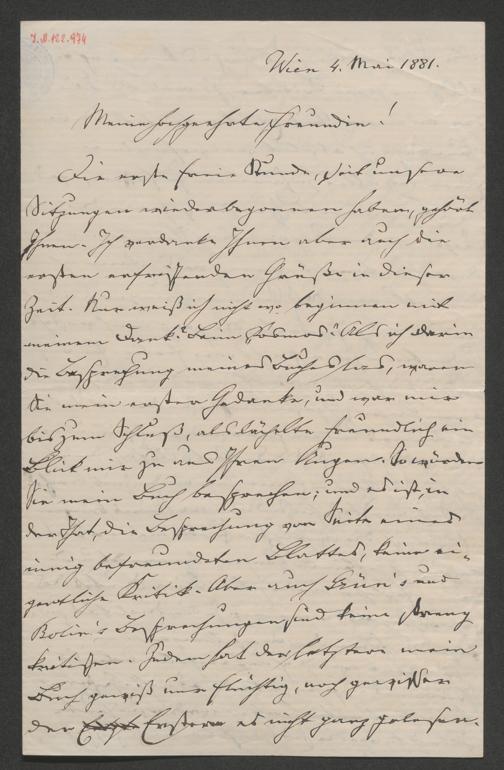 J.N.122.974
Wien 4. Mai 1881.
Meine hochgeehrte Freundin!
Die erste freie Stunde, seit unsere
Sitzungen wiederbegonnen haben, gehört
Ihnen. Ich verdanke Ihnen aber auch die
ersten erfrischenden Grüße in dieser
Zeit. Nur weiß ich nicht wo beginnen mit
meinem Dank? Beim Kosmos? Als ich darin
die Besprechung meines Buches las, waren
Sie mein erster Gedanke, und war mir
bis zum Schluß, als lächelte freundlich ein
Blick mir zu aus Ihren Augen. So würden
Sie mein Buch besprechen; und es ist, in
der That, die Besprechung von Seite eines
innig befreundeten Blattes, keine ei-
gentliche Kritik. Aber auch Grün's und
Bolin's Besprechungen sind keine streng
kritischen. Jedem hat der letztere mein
Buch gewiß nur flüchtig, noch gewisser
der Erstere es nicht ganz gelesen.